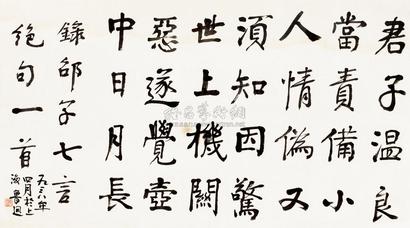 君子温良
當責備小
人情偽又
須知因驚
世上機關
惡遂覺壺
中日月長
錄邵子七言
絕句一首
九三年
四月於上
海魯迅